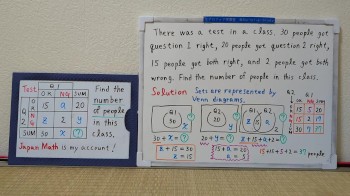 Test
Q1
OK
NG
SUM
Q2
OK
15
a
20
NG
z
2
y
SUM
30
x
?
Find the
number of
people
in this
class.
Japan Math is my account!
There was a test in a class. 30 people got
question 1 right, 20 people got question 2 right,
15 people got both right, and 2 people got both
wrong. Find the number of people in this class.
Solution
Sets are represented by
Venn diagrams.
Q1
30
x
Q2
20
y
Q1
Q2
z
15
a
2
30 + x = ?
20 + y = ?
z + 15 + a + 2 = ?
z + 15 = 30
z = 15
15 + a = 20
a = 5
15 + 15 + 5 + 2 = 37 people